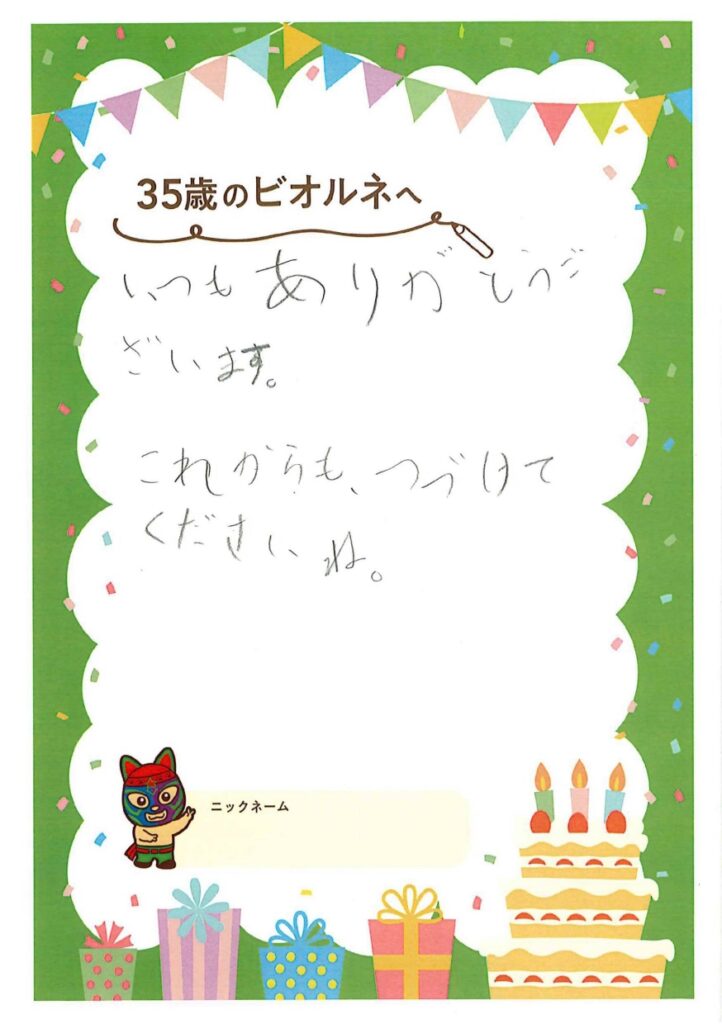 35歳のビオルネへ
いつもありがとうご
ざいます。
これからも、つづけて
くださいね。
ニックネーム